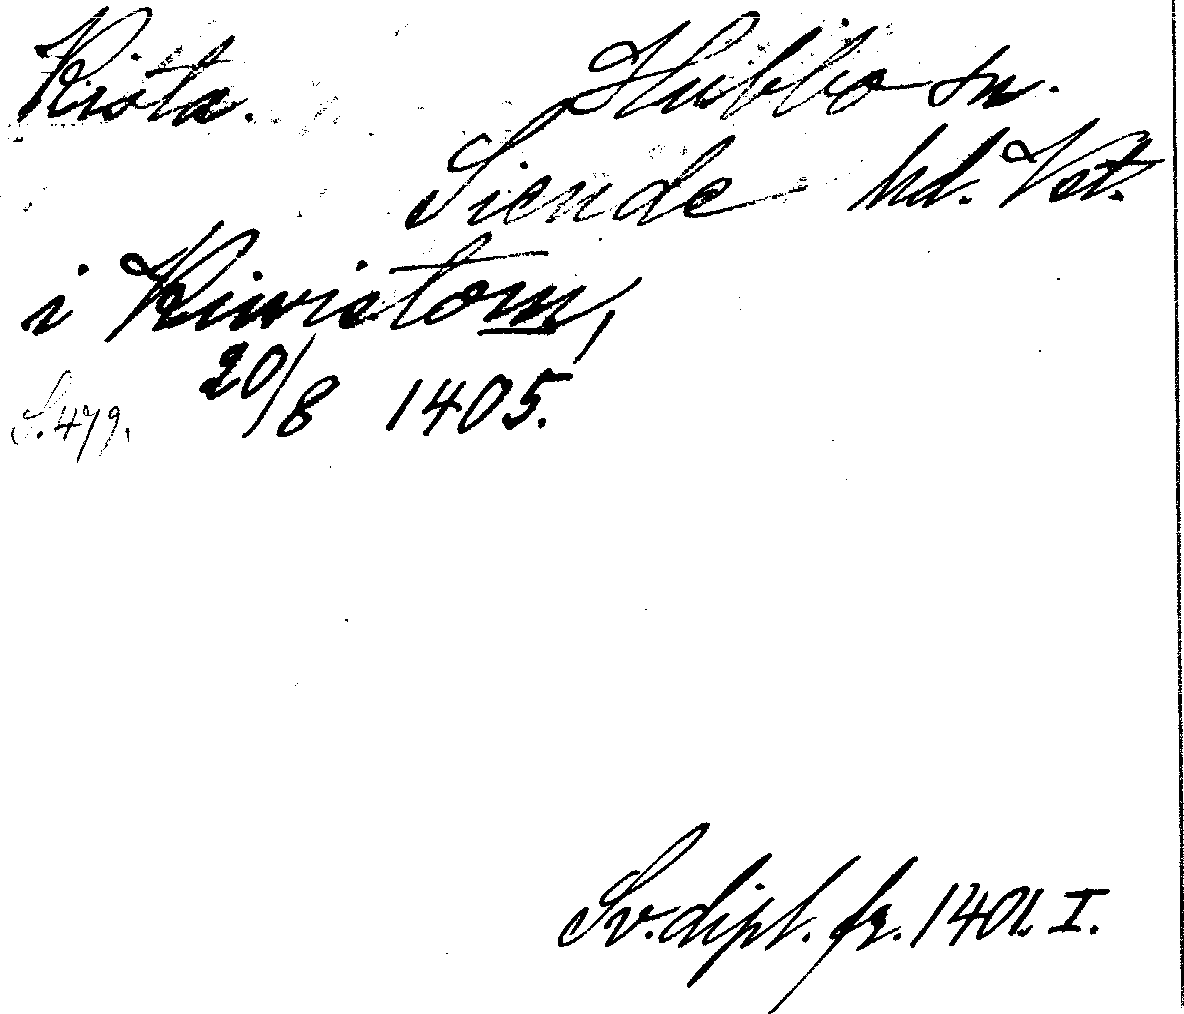 Kista. Hubbo sn.
Siende hd. Vst.
i Kiwistom,
20/8 1405.
S. 479.
Sv. dipl. fr. 1401. I.